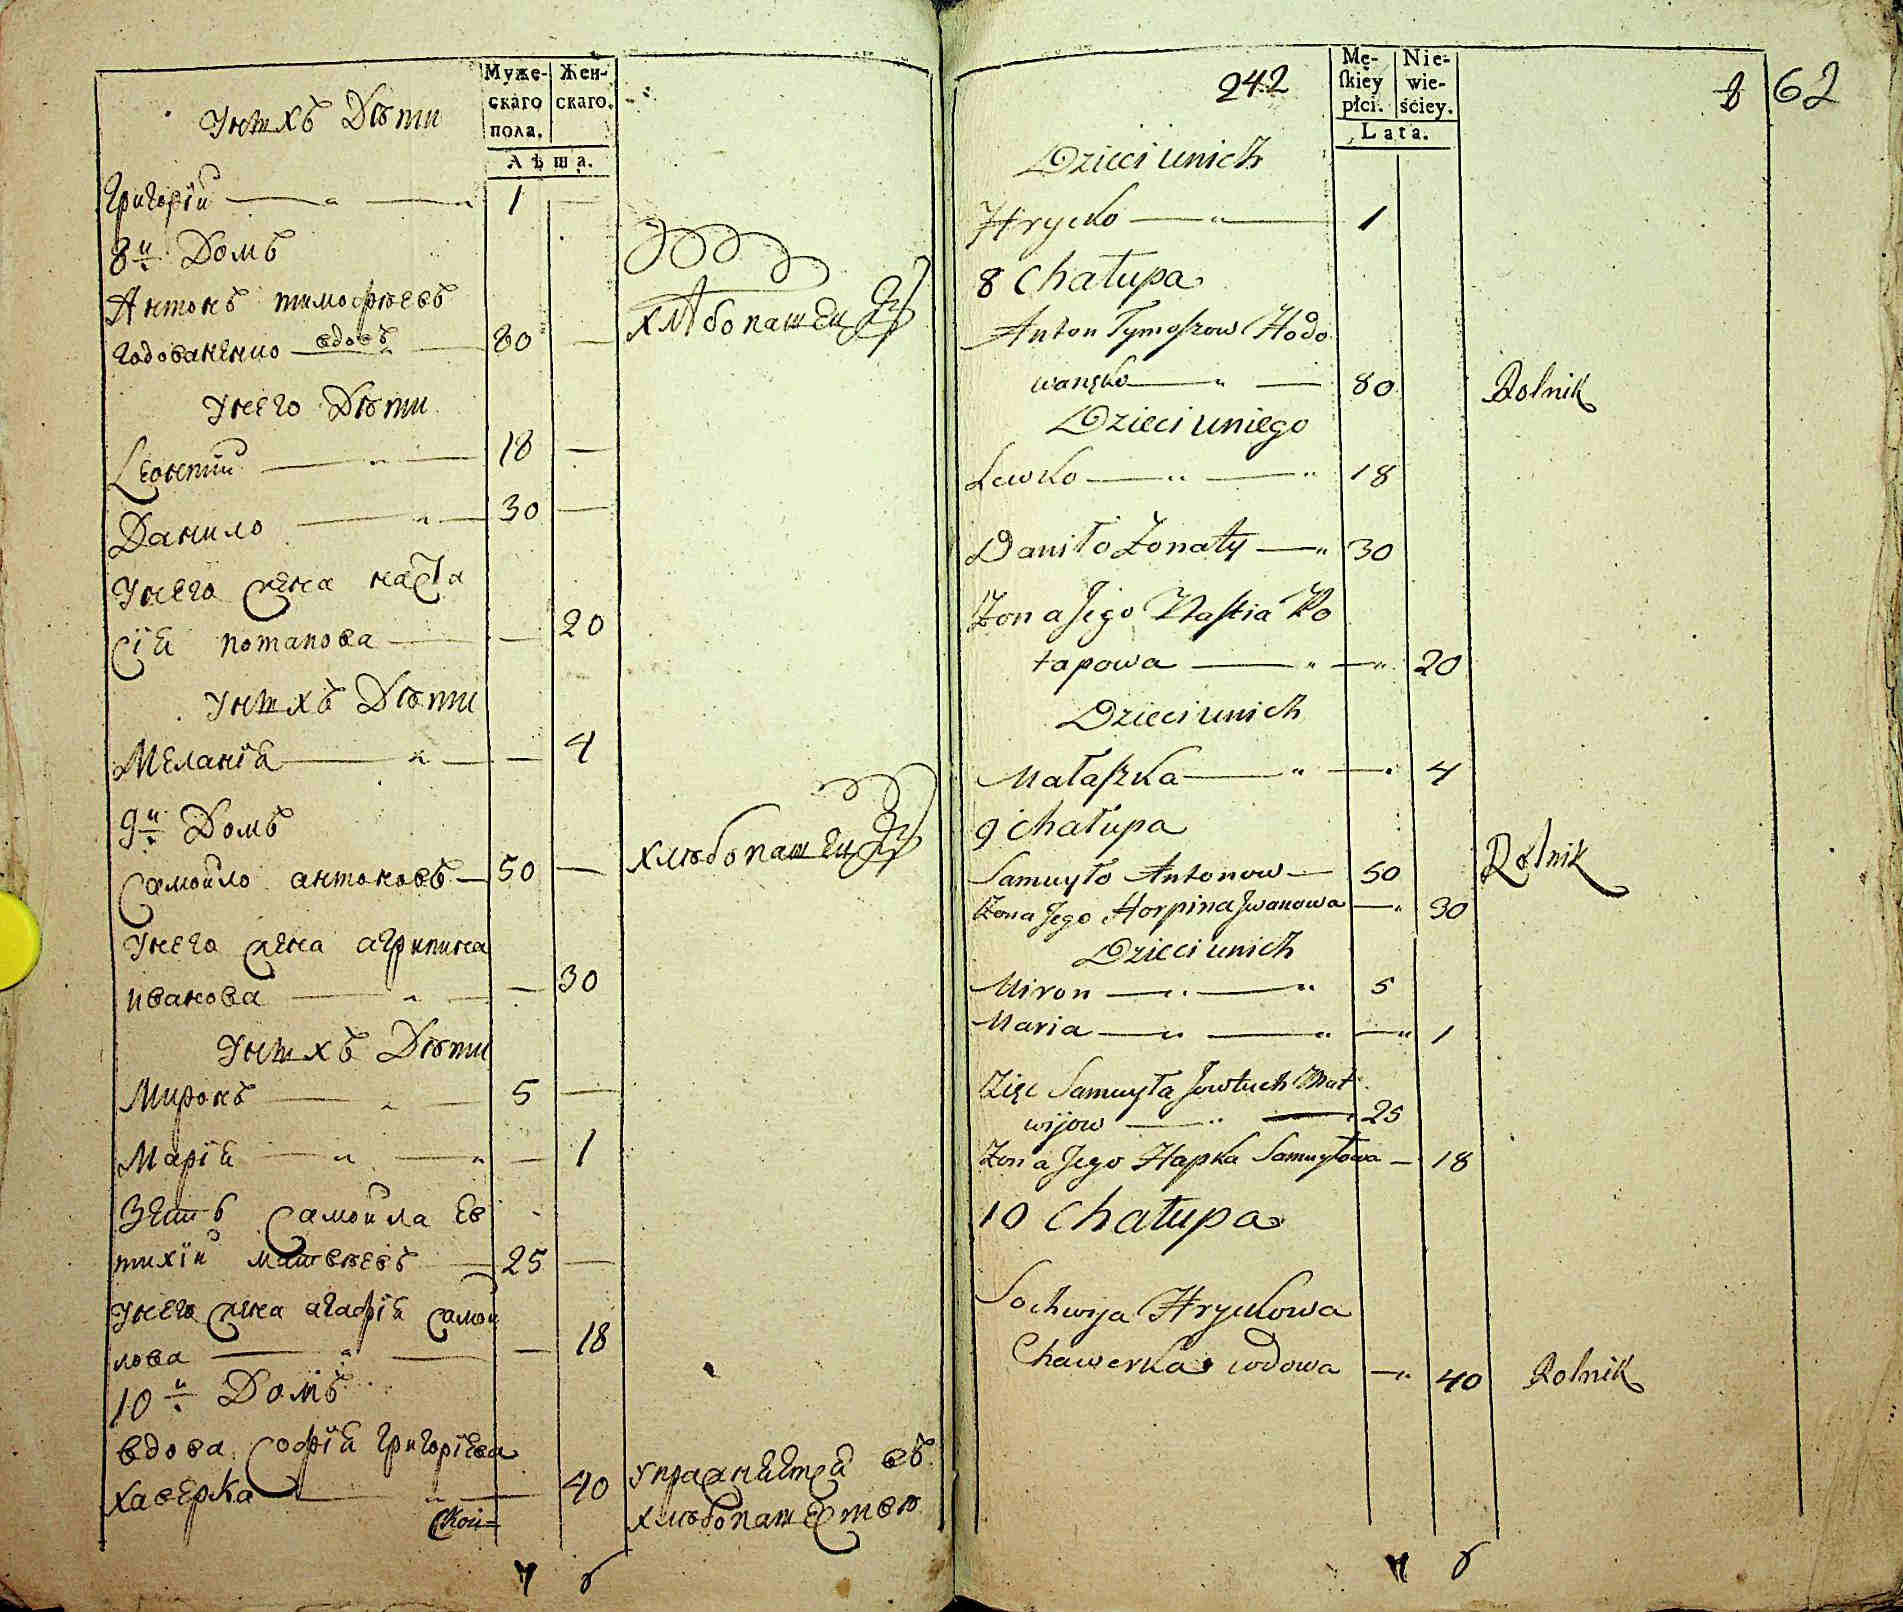 Мужескаго пола.
Женскаго.
Лѣта.
Унихъ Дѣти
Григорій 1
8й Домъ
Антонъ тимофѣевъ
годованенко вдовъ 80 хлѣбопашец
Унего Дѣти
Леонтий 18
Данило 30
Унего жена наста
сія потапова 20
Унихъ Дѣти
Меланія 4
9й Домъ
Самойло антоновъ 50 хлѣбопашец
Унего жена агрипина
иванова 30
Унихъ Дѣти
Миронъ 5
Марія 1
Зеть Самойла Ев
тихій матвѣевъ 25
Унего жена агафія самой
лова 18
10й Домъ
вдова Софія григоріева
хаверка 40 упражняется въ
хлѣбопашествѣ
7 6
242
Mę-
skiey
płci.
Nie-
wie-
ściey.
Lata.
62
Dzieci unich
Hrycko 1
8 Chałupa
Anton Tymoszow Hodo
wanęko 80 Rolnik
Dzieci uniego
Lewko 18
Daniło Żonaty 30
Żona Jego Nastia Po
tapowa 20
Dzieci unich
Małaszka 4
9 Chałupa
Samuyło Antonow 50 Rolnik
Żona Jego Horpina Jwanowa 30
Dzieci unich
Miron 5
Maria 1
Zięć Samuyła Jowtuch Mat
wijow 25
Żona Jego Hapka Samuyłowa 18
10 Chałupa
Sochwija Hryckowa
Chawerka wdowa 40 Rolnik
7 6